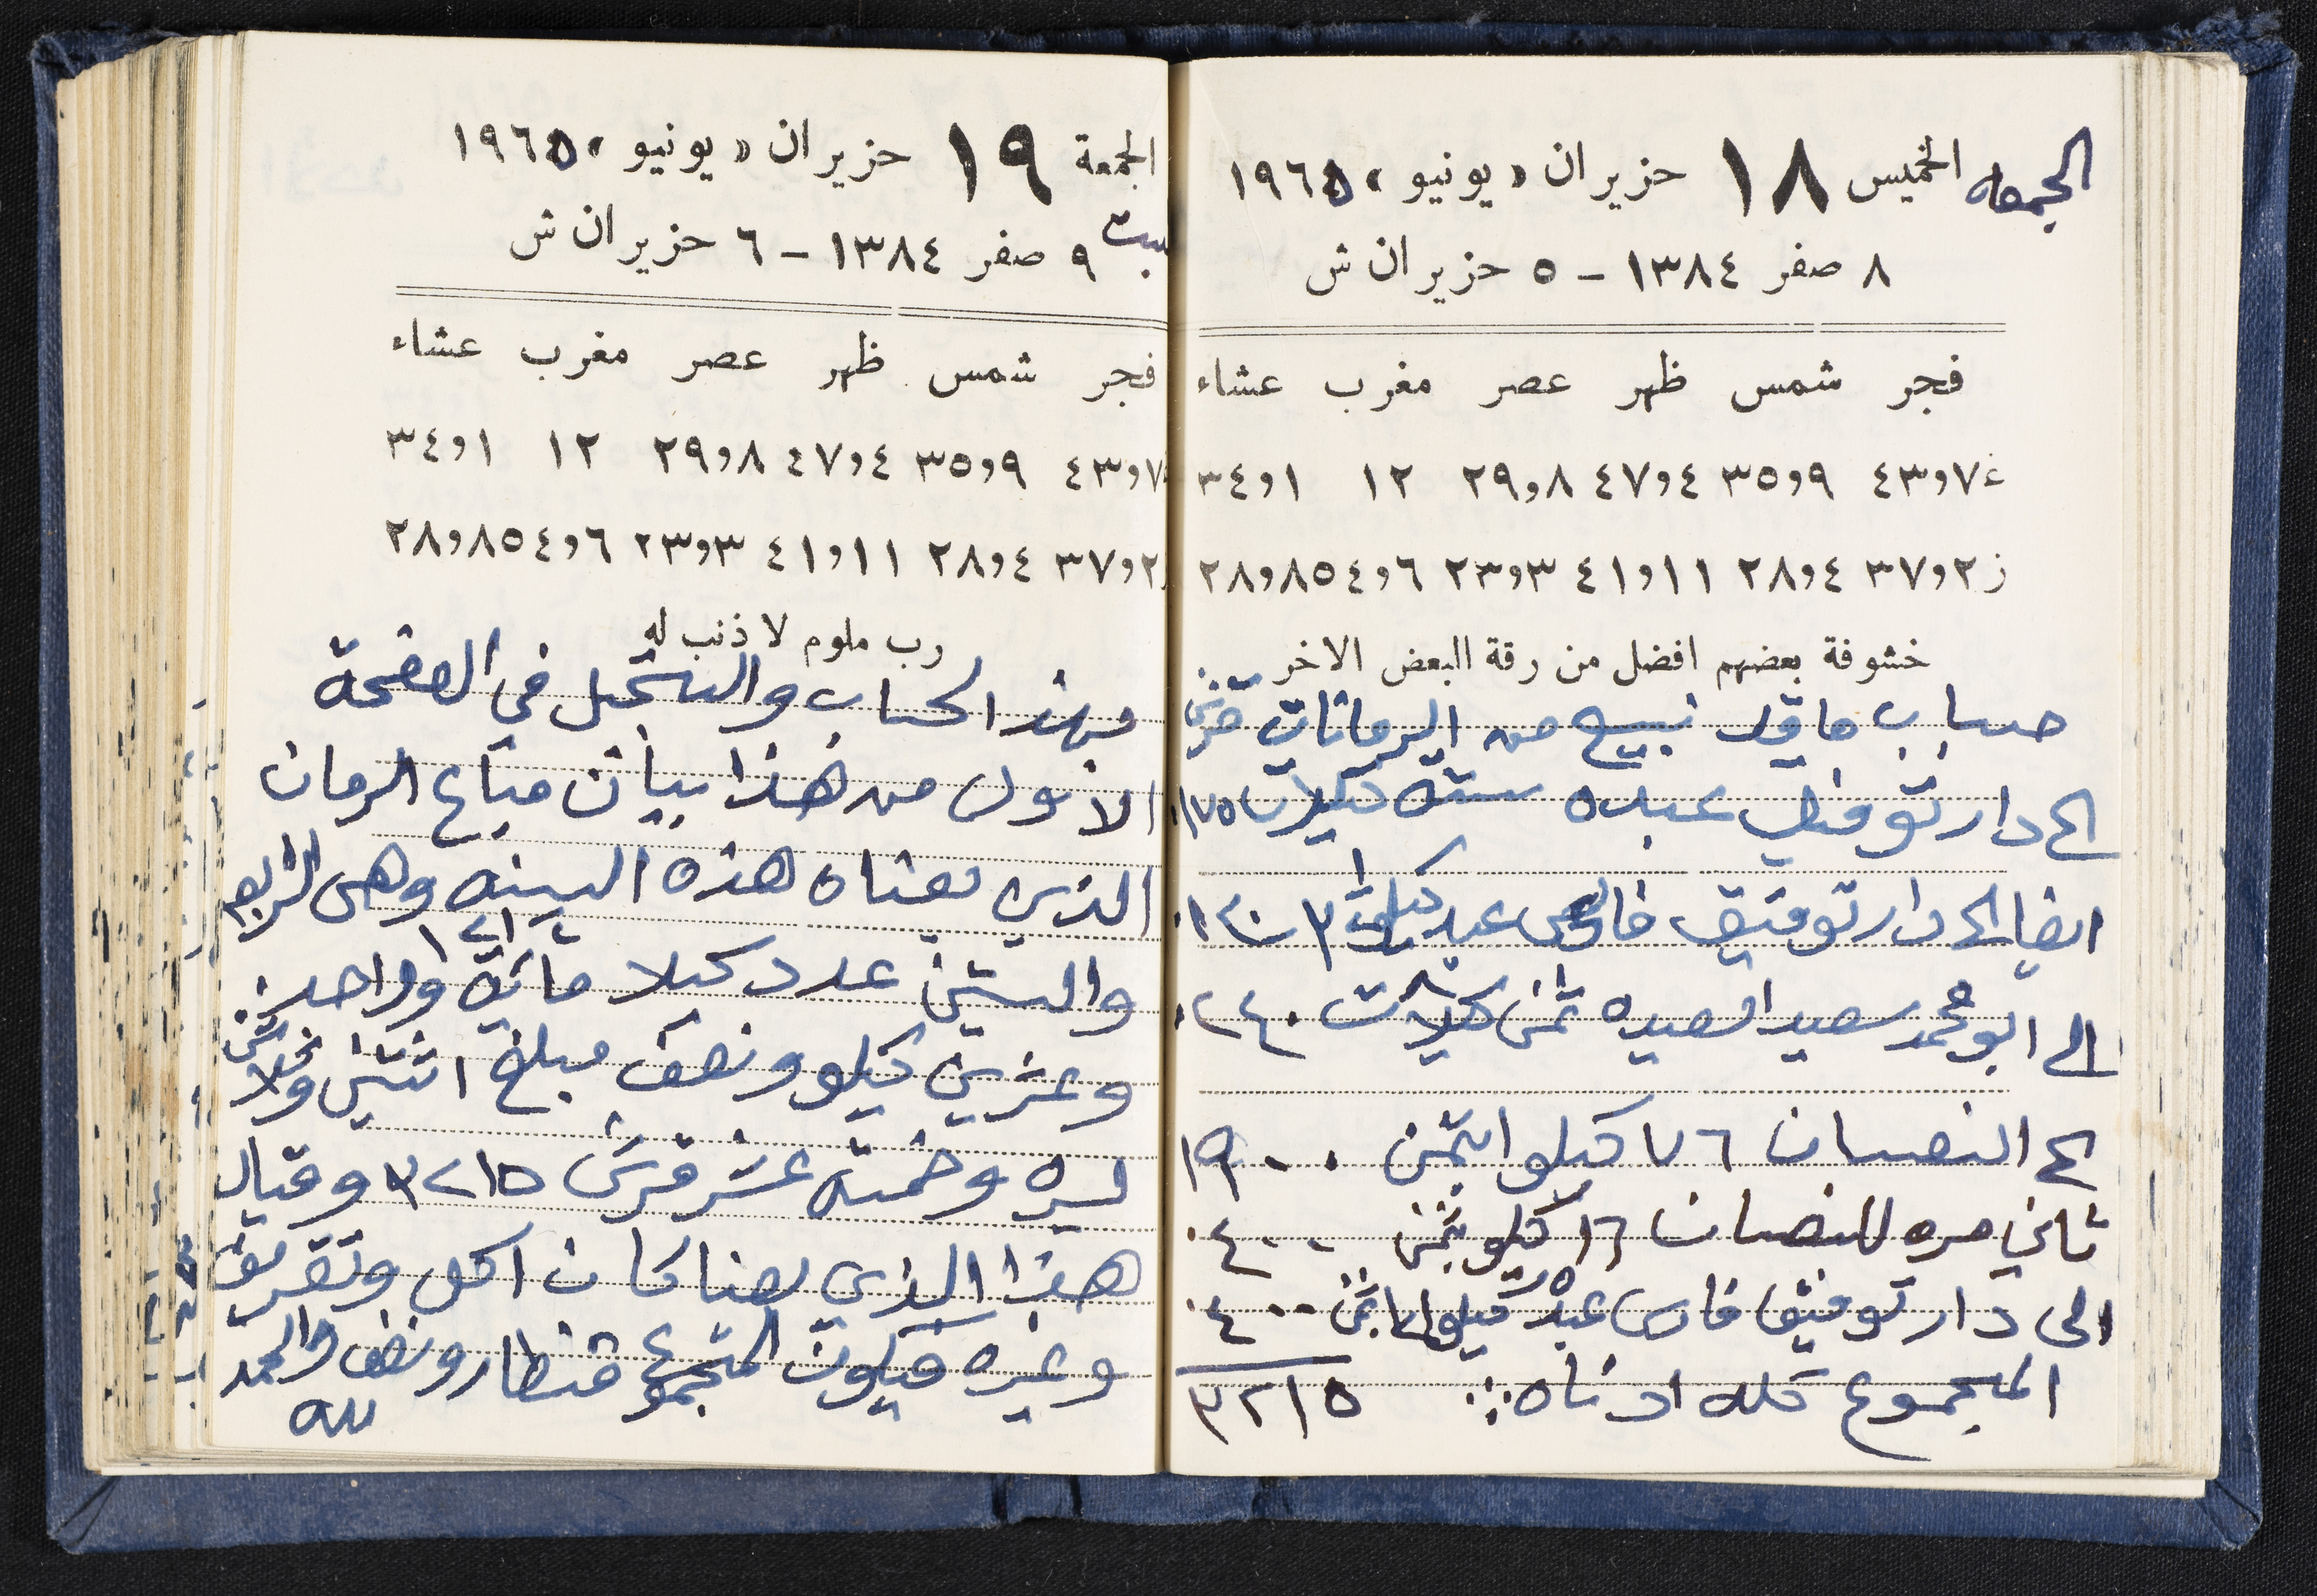 الجمعه الخميس ١٨ حزيران «يونيو» ١٩٦٥
٨ صفر ١٣٨٤ - ٥ حزيران ش
فجر شمس ظهر عصر مغرب عشاء
غ ٧و٤٣ ٩و٣٥ ٤و٤٧ ٨و٢٩ ١٢ ١و٣٤
ز ٢و٣٧ ٤و٢٨ ١١و٤١ ٣و٢٣ ٦و٥٤ ٨و٢٨
خشوفة بعضهم افضل من رقة البعض الاخر
حساب ما قد نبيع من الرمانات قرش
الى دار توفيق عبده ستة كيلات ١٧٥
ايضا الى دار توفيق فارس عبد كيلوات
الى ابو محمد سعيد السعيده ثمن كيلات ٢٤٠
الى النعسان ٧٦ كيلو ابثمن ١٩٠٠
ثاني مره للنعسان ١٦ كيلو بثمن ٤٠٠
الى دار توفيق فارس عبده كيلو بثمن ٤٠٠
المجموع كله ادناه ٣٢١٥
الجمعة ١٩ حزيران «يونيو» ١٩٦٥
سبت ٩ صفر ١٣٨٤ - ٦ حزيران ش
فجر شمس ظهر عصر مغرب عشاء
٧و٤٣ ٩و٣٥ ٤و٤٧ ٨و٢٩ ١٢ ١و٣٤
٢و٣٧ ٤و٢٨ ١١و٤١ ٣و٢٣ ٦و٥٤ ٨و٢٨
رب ملوم لا ذنب له
وبهذ الحساب والتسجيل في الصفحة
الاول من هذا بيان مباع الرمان
الذي بعناه هذه السنه وهى الرابع
والستين عدد كيلا مائة واحد
وعشرين كيلو ونصف مبلغ اثنتين وثلاثين
ليره وخمسة عشر قرش ٣٢١٥ وقبال
هذا الذي بعنا كان اكل وتفريق
وغيره فيكون المجموع قنطار ونصف والحمد
لله